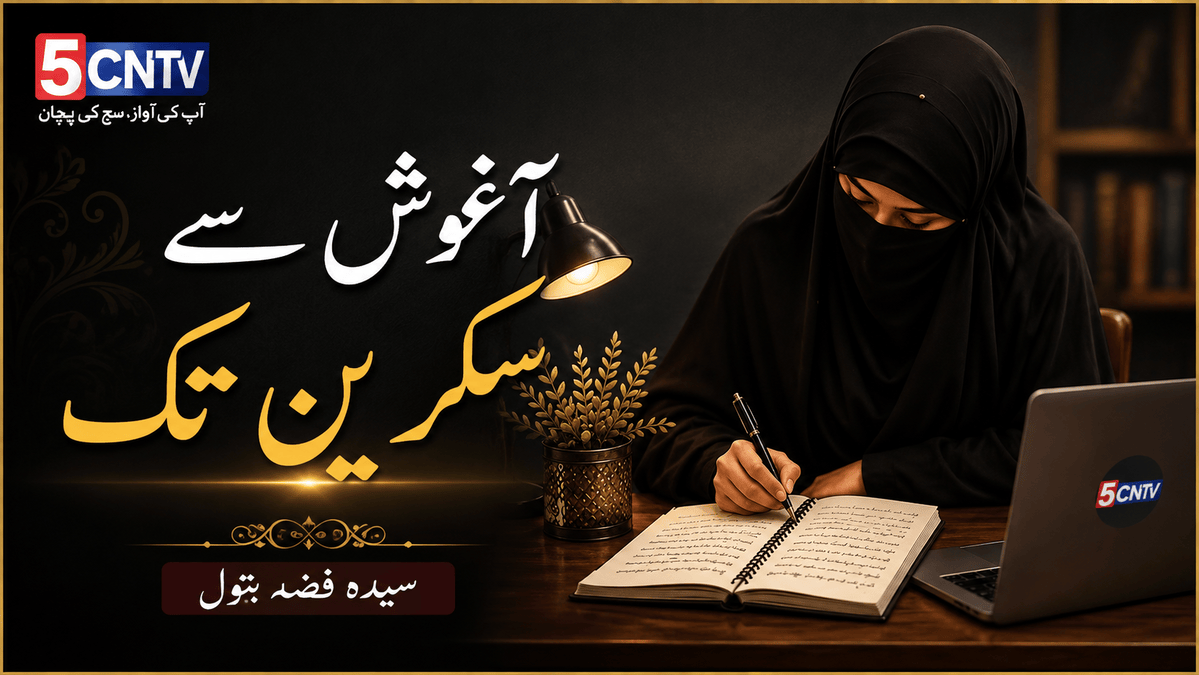 5CNTV
آپ کی آواز، سچ کی پہچان
آغوش سے
سکرین تک
سیدہ فضہ بتول
5CNTV